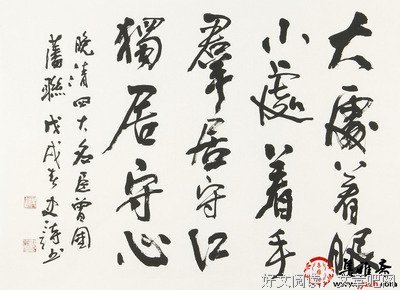 大處着眼
小處着手
羣居守
獨居守心
晚清四大名臣曾國
藩聯戊戌春
好文阅读